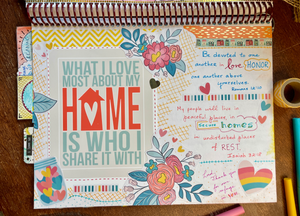 WHAT I LOVE
MOST ABOUT MY
HOME
IS WHO I
SHARE IT WITH
Be devoted to one
another in love HONOR
one another above
yourselves.
Romans 12:10
My people will live in
peaceful places in
secure homes
in undisturbed places
of REST.
Isaiah 32:18
Thank you